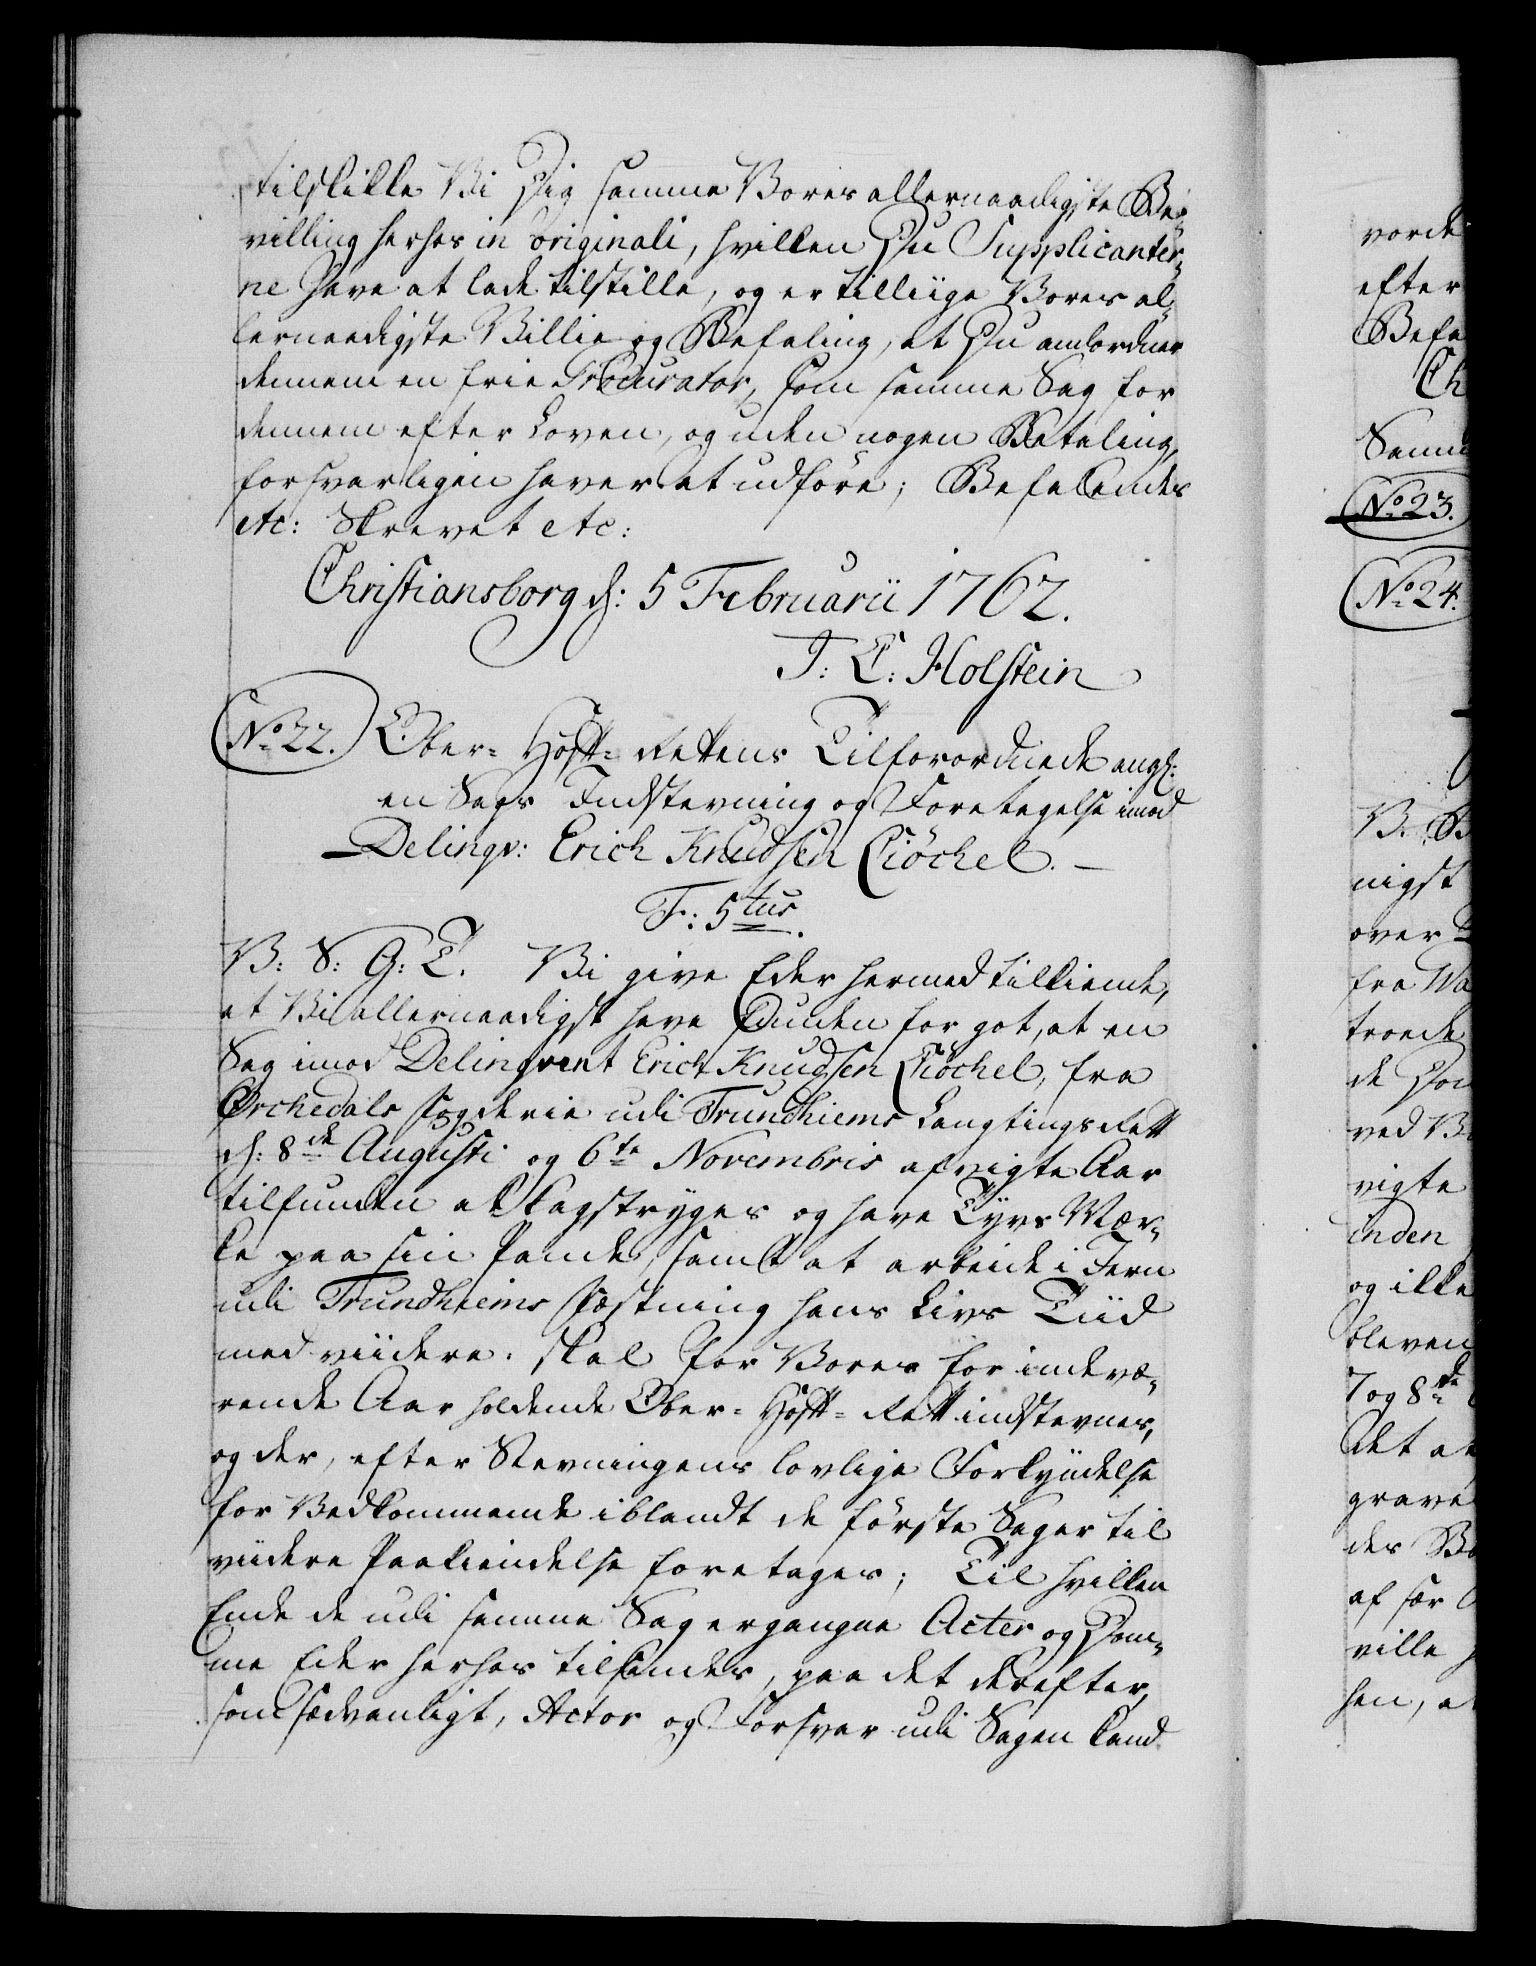 tilskikke Vi Dig samme Vores allernaadigste Be-
villing herhos in originali, hvilken Du Supplicanter-
ne have at lade tilstille, og er tilliige Vores al-
lernaadigste Villie og Befaling, at Du anordner
dennem en frie Procurator, som samme Sag for
dennem efter Loven, og uden nogen Betaling,
forsvarligen haver at udføre; Befalendes
etc: Skrevet etc:
Christiansborg d: 5 Februarii 1762.
J: L: Holstein
No 22. Ober-Hoff-Rettens Tilforordnede angl:
en Sags Indstevning og Foretagelse imod
Delinqv: Erich Knudsen Kiöchel. —
F: 5tus.
V: S: G: T. Vi give Eder hermed tilkiende,
at Vi allernaadigst have funden for got, at en
Sag imod Delinqvent Erich Knudsen Kiöchel, fra
Orchedals fogderie udi Trundhiems Laugtings Rett
d: 8de Augusti og 6te Novembris afvigte Aar
tilfunden at Kagstryges og have Tyvs Mær-
ke paa sin Pande, samt at arbeide i Jern
udi Trundhiems Fæstning hans Livs Tiid
med viidere. skal for Vores for indevæ-
rende Aar holdende Ober-Hoff-Rett indstevnes,
og der, efter Stevningens lovlige Forkyndelse
for Vedkommende iblandt de første Sager til
viidere Paakiendelse foretages; Til hvilken
Ende de udi samme Sag ergangne Acter og Dom-
me Eder herhos tilsendes, paa det derefter,
som sædvanligt, Actor og Forsvar udi Sagen kand
vorde
efter
Befa
Ch
No 23.
No 24.
nigst
over
fra
troede
de
ved
vigte
inden
og ikke
bleven
7 og 8de
det at
grave
des
af
ville
hen,